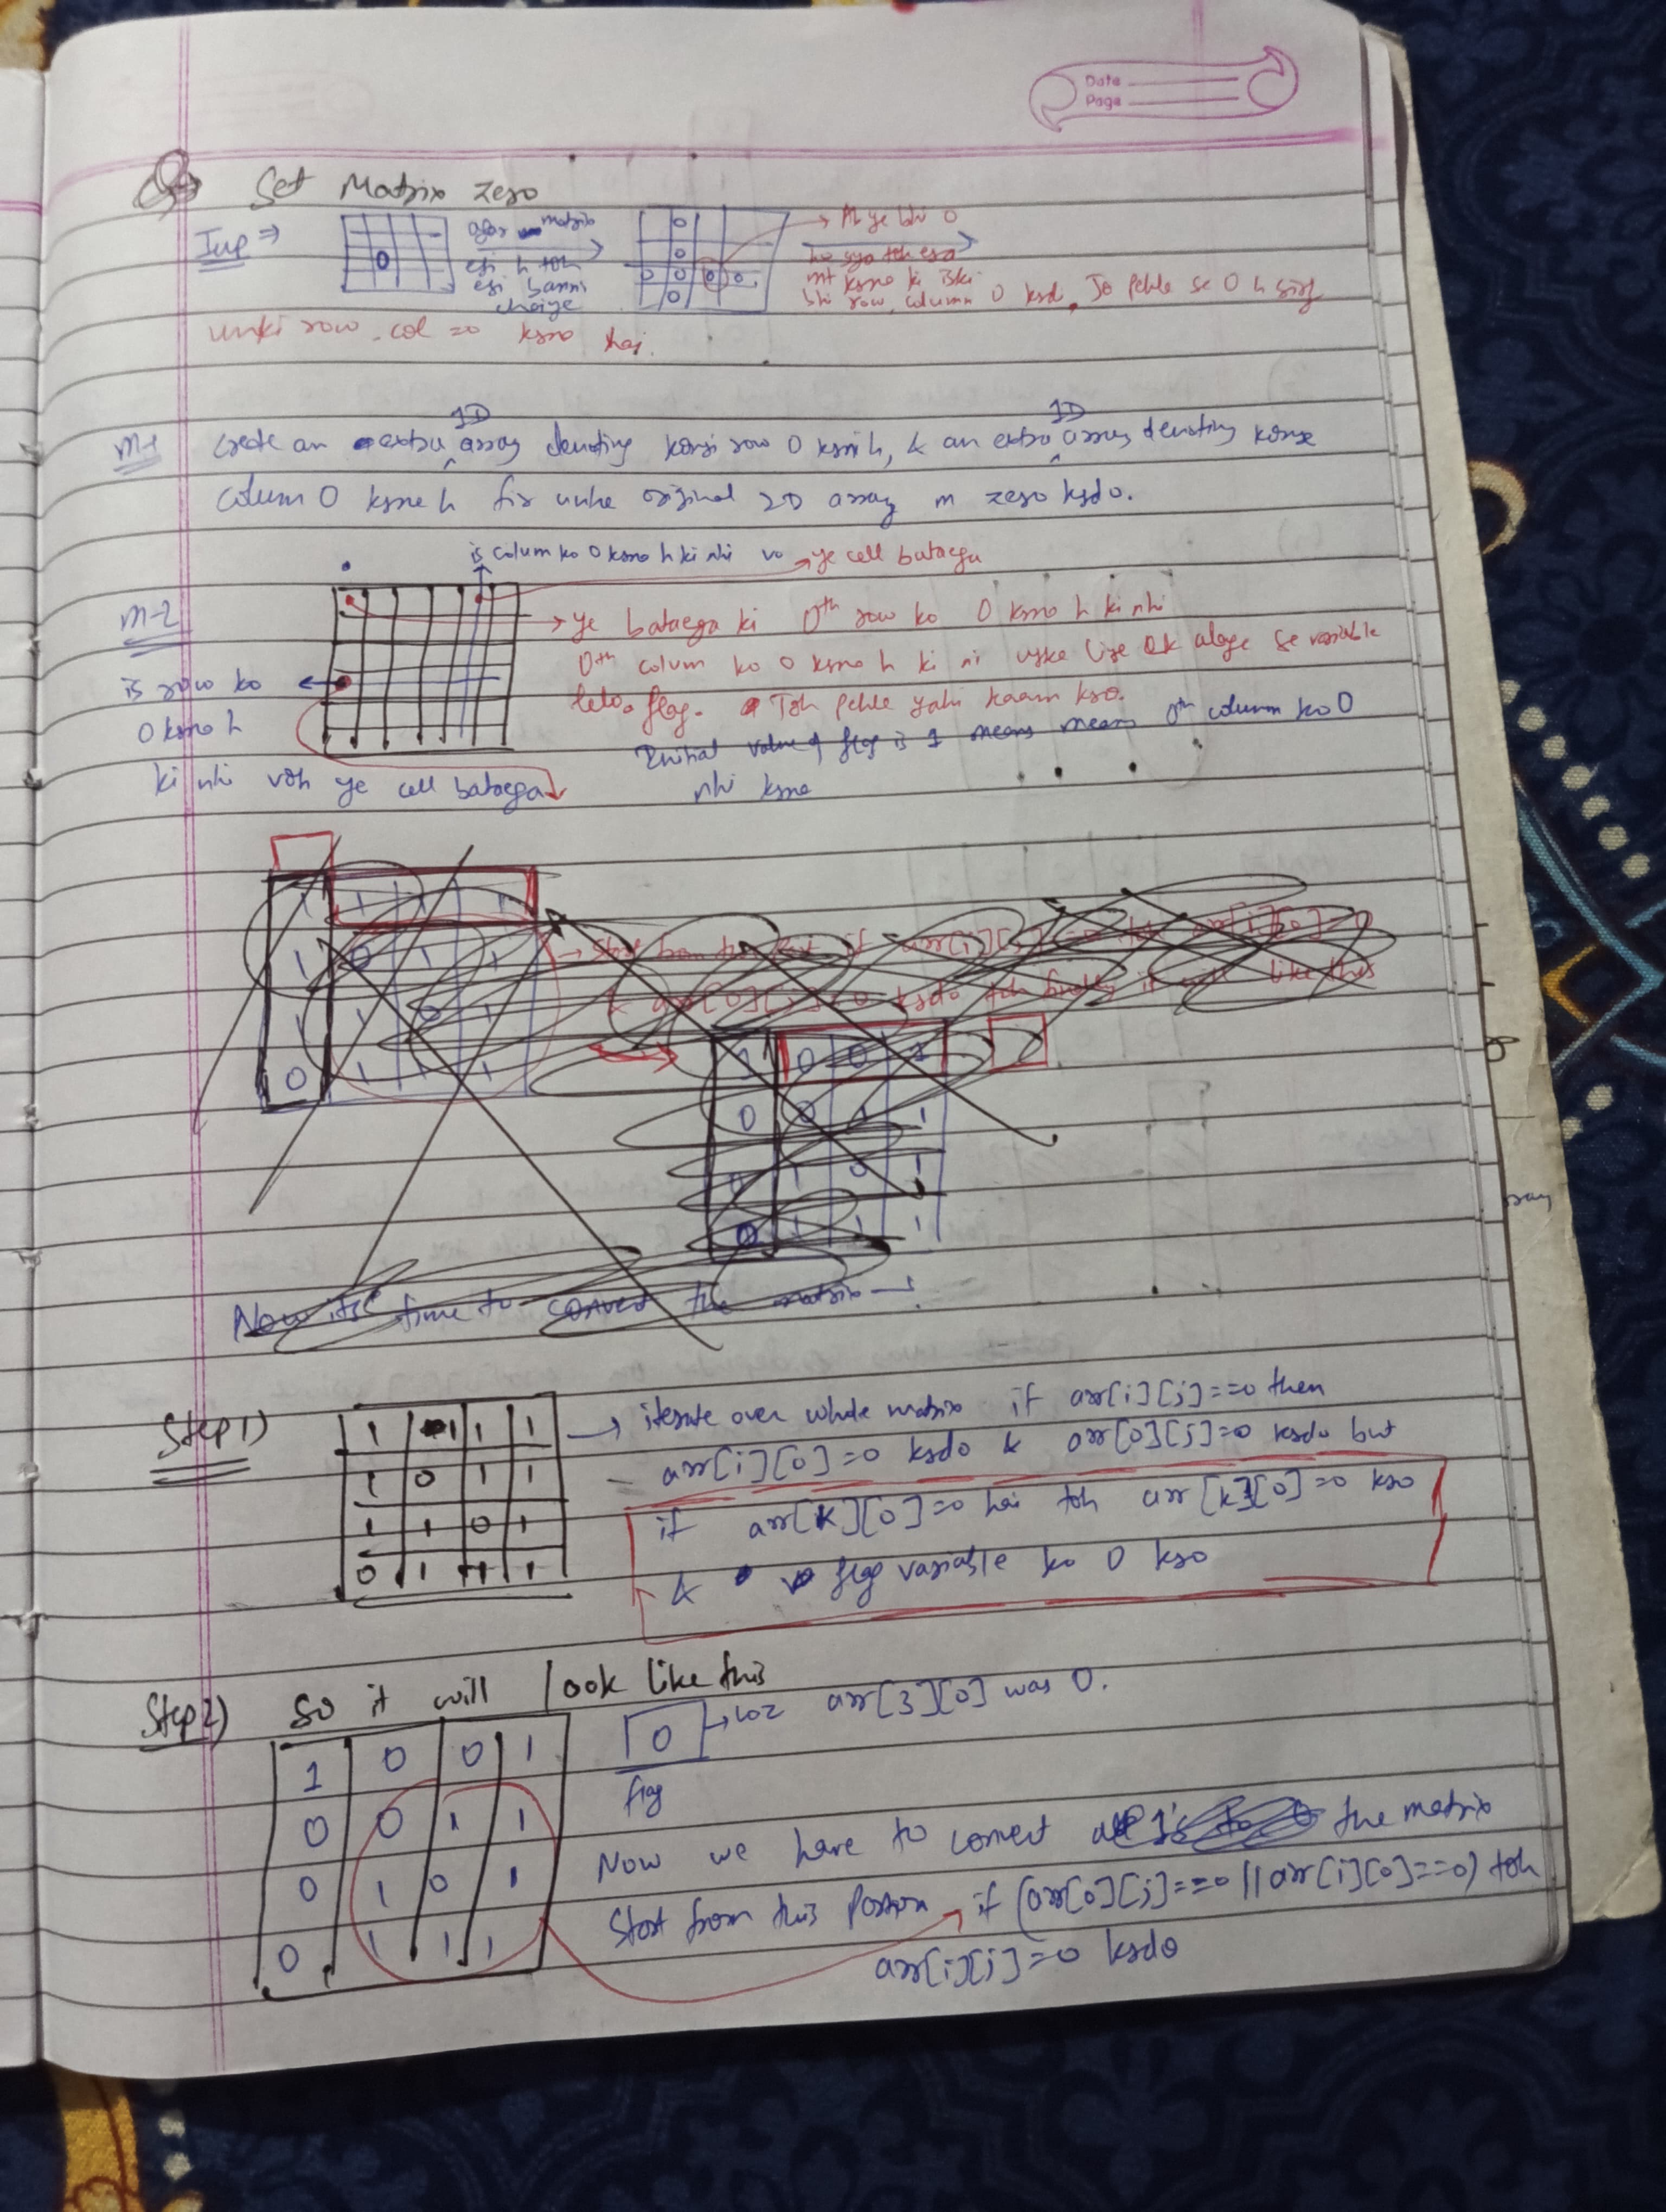 Date
Page
Q Set Matrix zero
Inp ⇒ agar matrix esi h toh esi banni chaiye
0
0
0
0 0 0 0
0
→ Ab ye bhi 0
ho gya toh esa
mt krna ki iski
bhi row, column 0 krdo, Jo pehle se 0 h sirf
unki row, col =0 krna hai.
M-1 Create an extra 1D array denoting konsi row 0 krni h, & an extra 1D array denoting konse
column 0 krne h fir unhe original 2D array m zero krdo.
is colum ko 0 krna h ki nhi vo → ye cell bataega
M-2
→ ye bataega ki 0th row ko 0 krna h ki nhi
0th colum ko 0 krna h ki ni uske liye ek alage se variable
lelo. flag. Toh pehle yahi kaam kro.
is row ko
0 krna h
ki nhi voh ye cell bataega
Initial value of flag is 1 means means 0th column ko 0
nhi krna
→ Start from
arr[i][j]
arr[i][0]=0
& arr[0][j]=0 krdo toh
it will like this
1 1 1
1 0 1 1
1 1 0 1
0 1 1 1
1 0 0 1
0 0 1 1
0 1 0 1
0 1 1 1
Now its time to convert the matrix →
Step 1)
1 1 1 1
1 0 1 1
1 1 0 1
0 1 1 1
→ iterate over whole matrix if arr[i][j]==0 then
arr[i][0]=0 krdo & arr[0][j]=0 krdo but
if arr[x][0]=0 hai toh arr[x][0]=0 kro
& flag variable ko 0 kro
Step 2) So it will look like this
1 0 0 1
0 0 1 1
0 1 0 1
0 1 1 1
0 → coz arr[3][0] was 0.
flag
Now we have to convert all 1's to 0 the matrix
Start from this portion → if (arr[0][j]==0 || arr[i][0]==0) toh
arr[i][j]=0 krdo